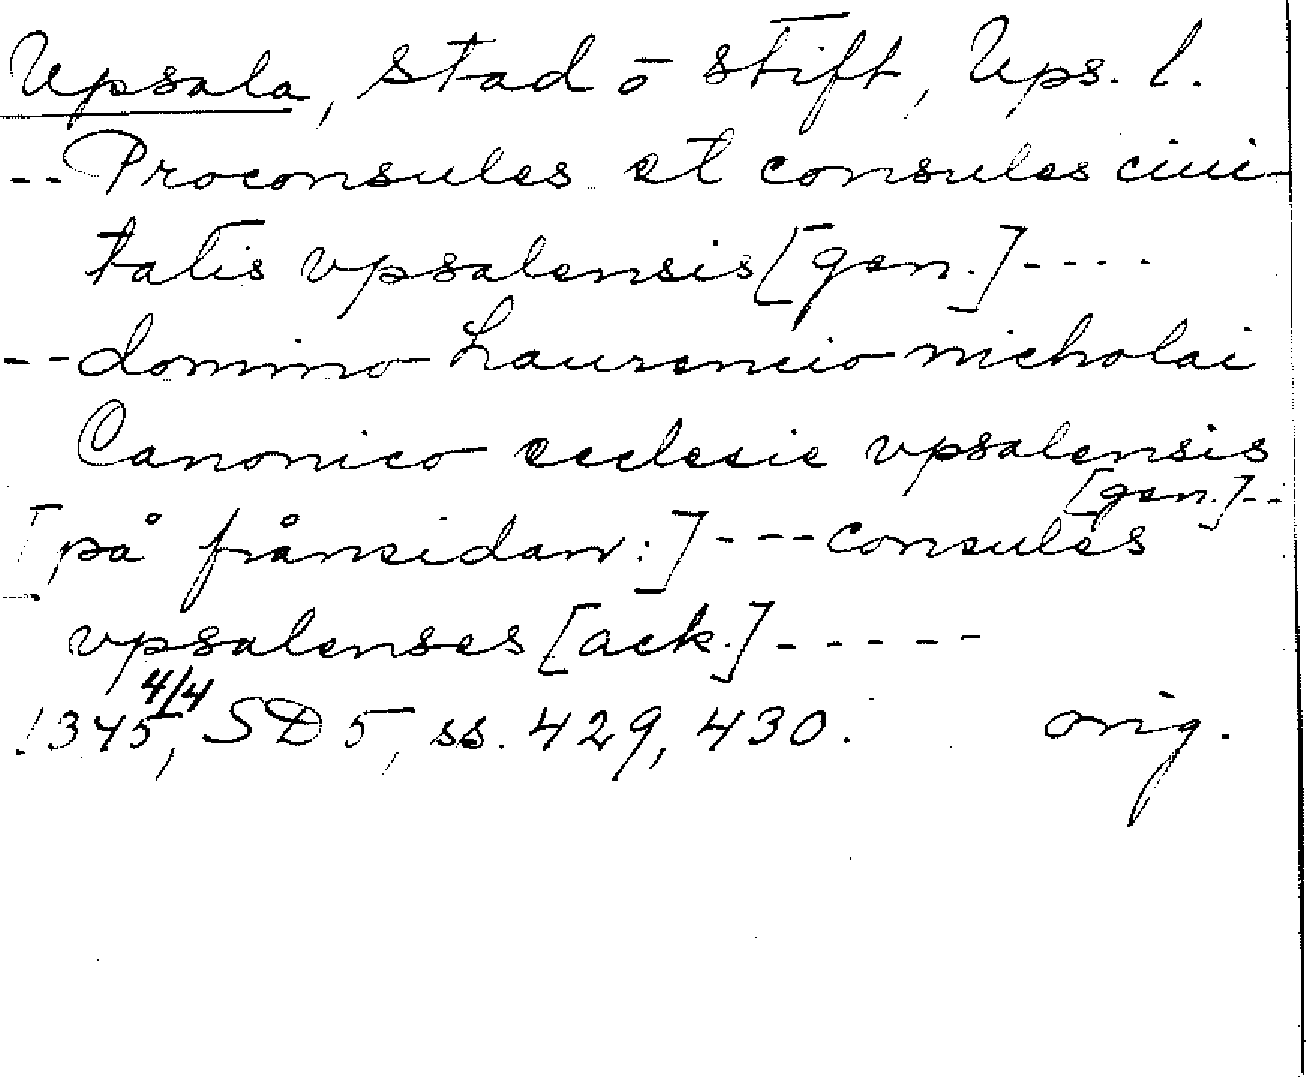 Upsala, stad o stift, Ups. l.
-- Proconsules et consules ciui-
tatis vpsalensis [gen.] ----
-- domino Laurencio nicholai
Canonico ecclesie vpsalensis
[gen.] --
[på frånsidan:] --- consules
vpsalenses [ack.] -----
1345 4/4, SD 5, ss. 429, 430. orig.